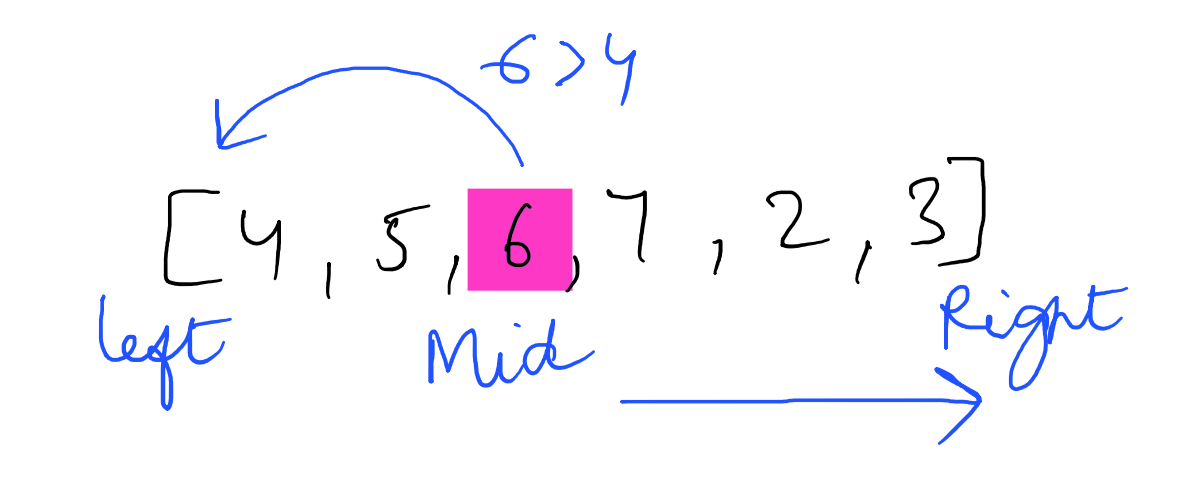 6>4
[4, 5, 6, 7, 2, 3]
left Mid Right